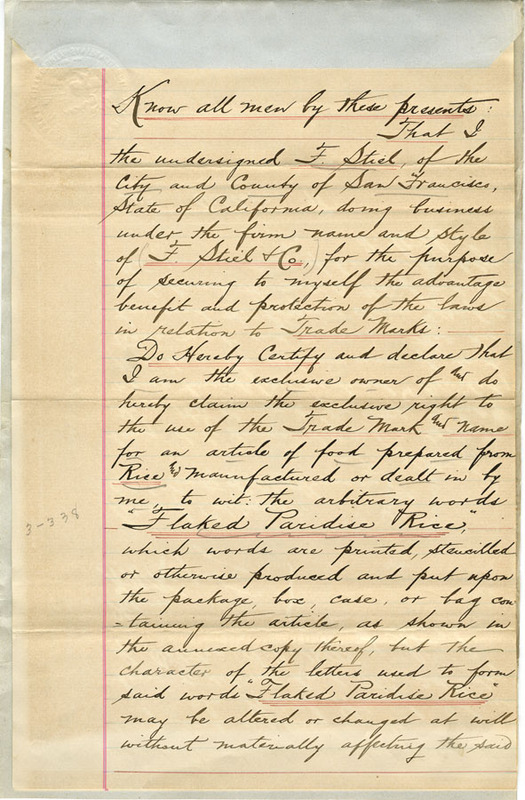 Know all men by these presents:
That I
the undersigned F. Stiel, of the
City and County of San Francisco,
State of California, doing business
under the firm name and style
of (F. Stiel & Co,) for the purpose
of securing to myself the advantage
benefit and protection of the laws
in relation to Trade Marks:
Do Hereby Certify and declare that
I am the exclusive owner of and do
hereby claim the exclusive right to
the use of the Trade Mark and name
for an article of food prepared from
Rice & manufactured or dealt in by
me to wit: the arbitrary words
"Flaked Paridise Rice",
which words are printed, stencilled
or otherwise produced and put upon
the package, box, case, or bag con
-taining the article, as shown in
the annexed copy thereof, but the
character of the letters used to form
said words "Flaked Paridise Rice"
may be altered or changed at will
without materially affecting the said
3-338